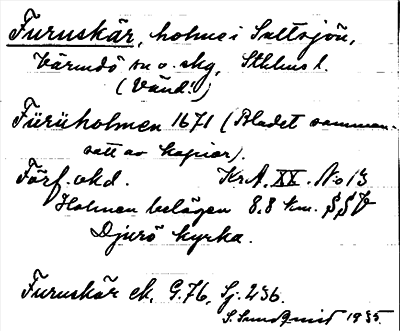 Furuskär, holme i Saltsjön,
Värmdö sn o. skg, Sthlms l.
(Vänd!)
Furuholmen 1671 (Bladet samman-
satt av kopior).
Förf. okd. KrA. XX. No 13
Holmen belägen 8.8 km. SSV
Djurö kyrka.
Furuskär ek. G.76, Sj. 236.
S. Sundquist 1935.